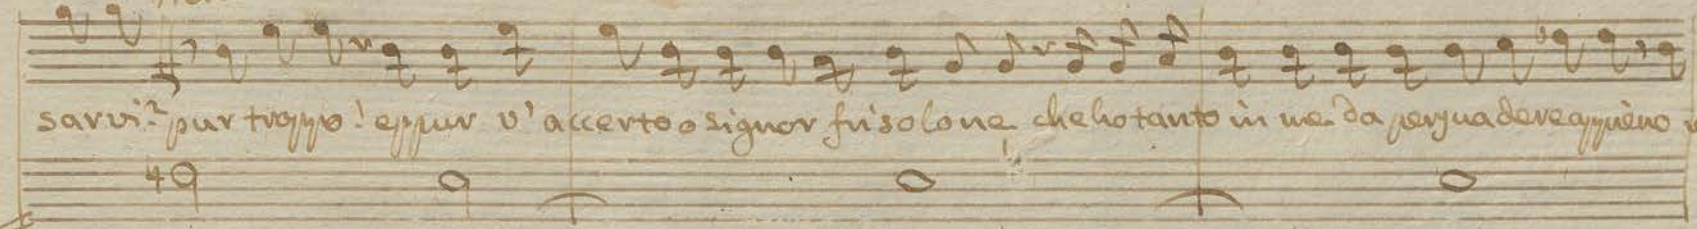 sarvi? pur troppo! eppur v'accerto o signor frisolone che ho tanto in me da persuadere appieno